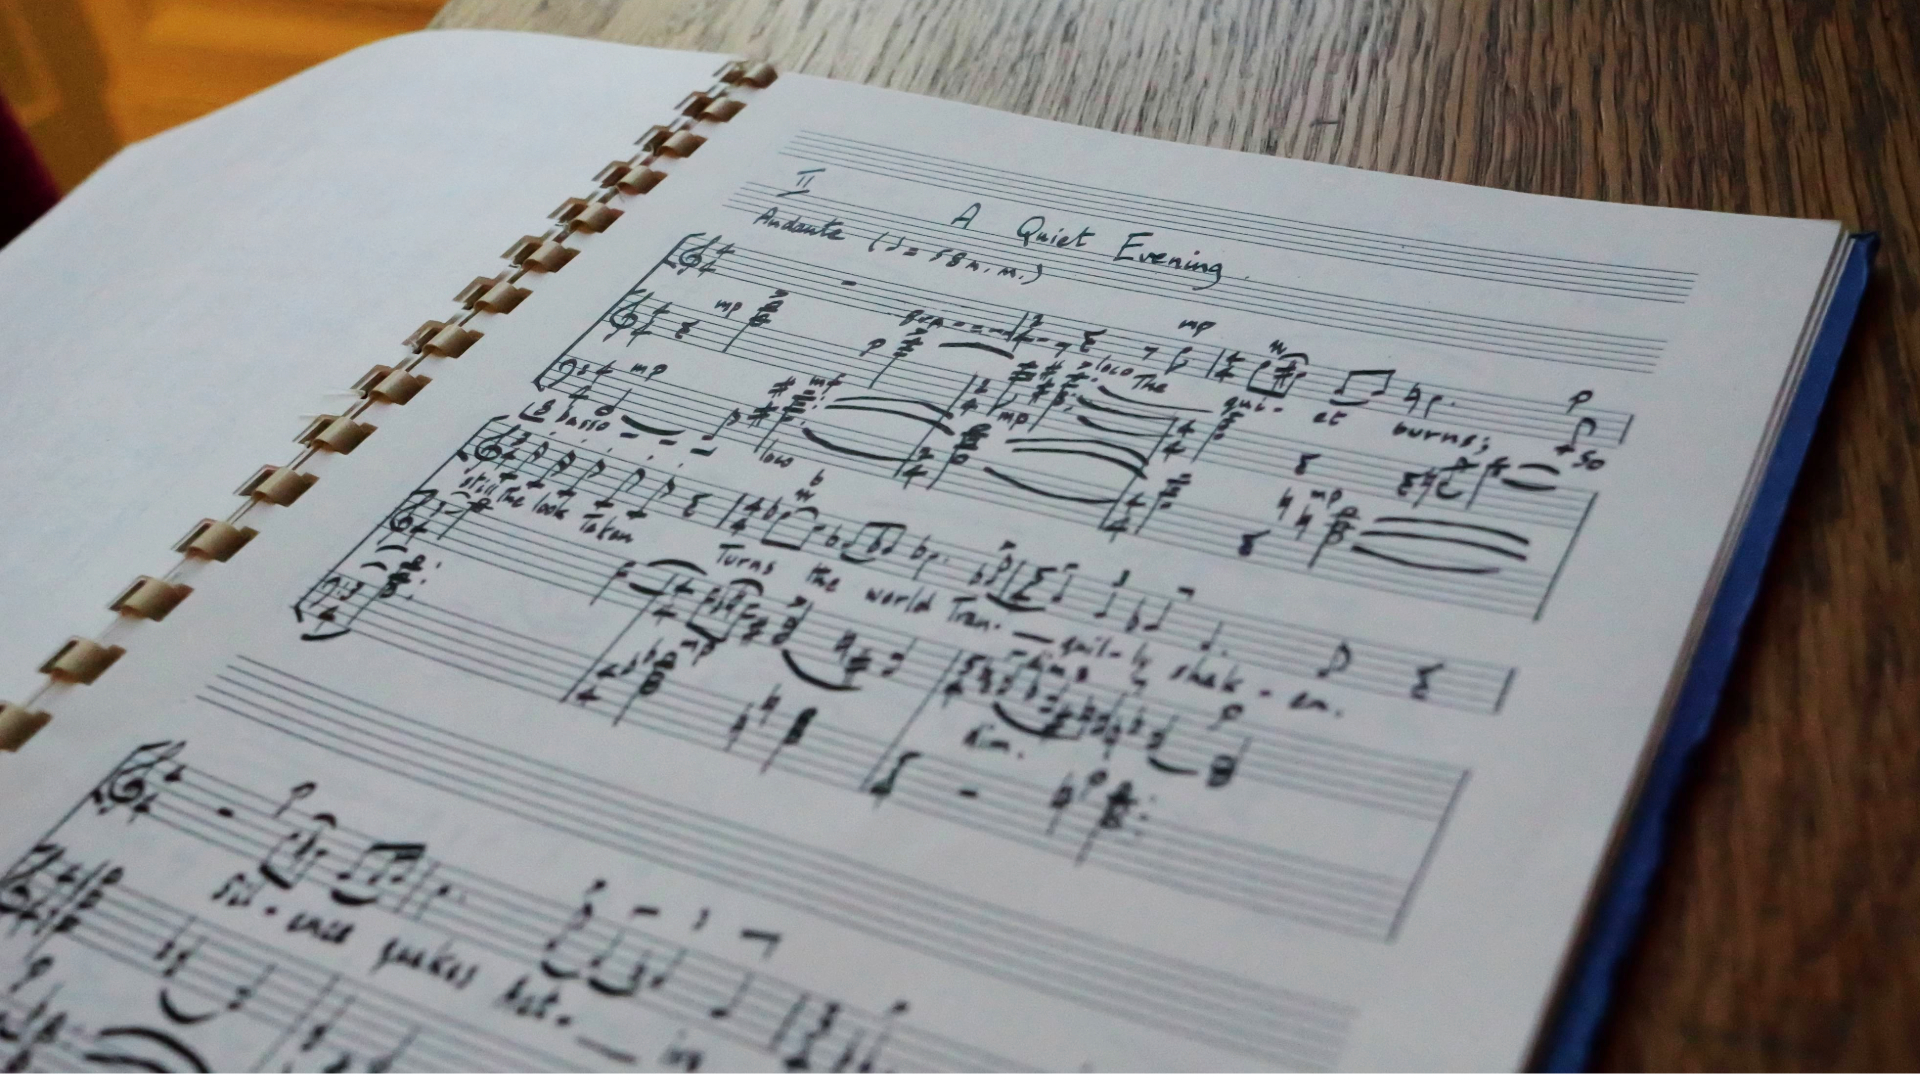 II
A Quiet Evening.
Andante (♩= 58 m.m.)
mp
mp p
loco The qui- et burns; so
mp mf mp mp
8 basso loco
still the look Taken Turns the world Tran- quil-ly shak-en.
mp
dim.
p
p
Sil-ence quakes
p